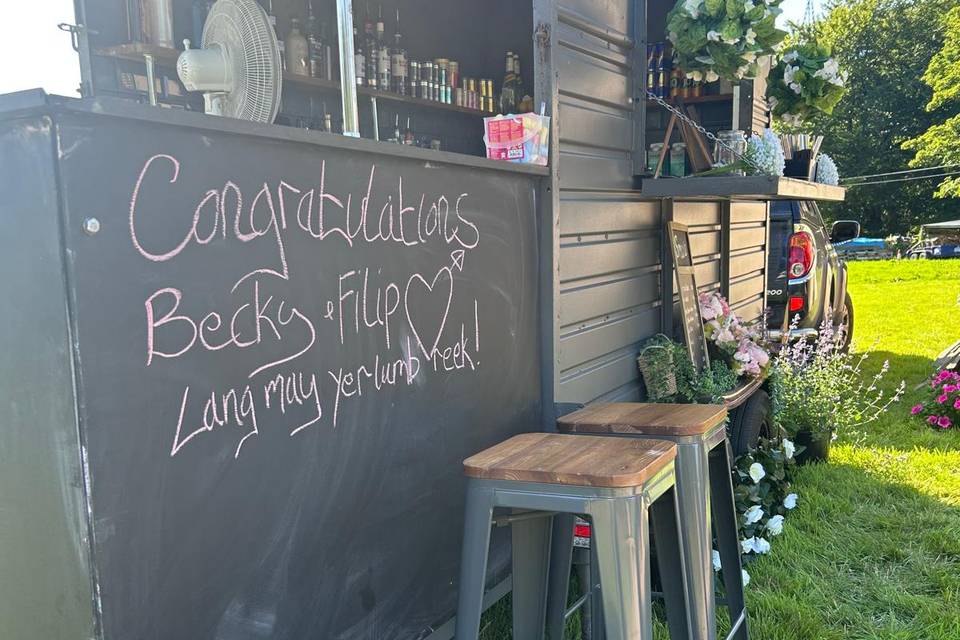 Congratulations
Becky & Filip
Lang may yer lumb reek!